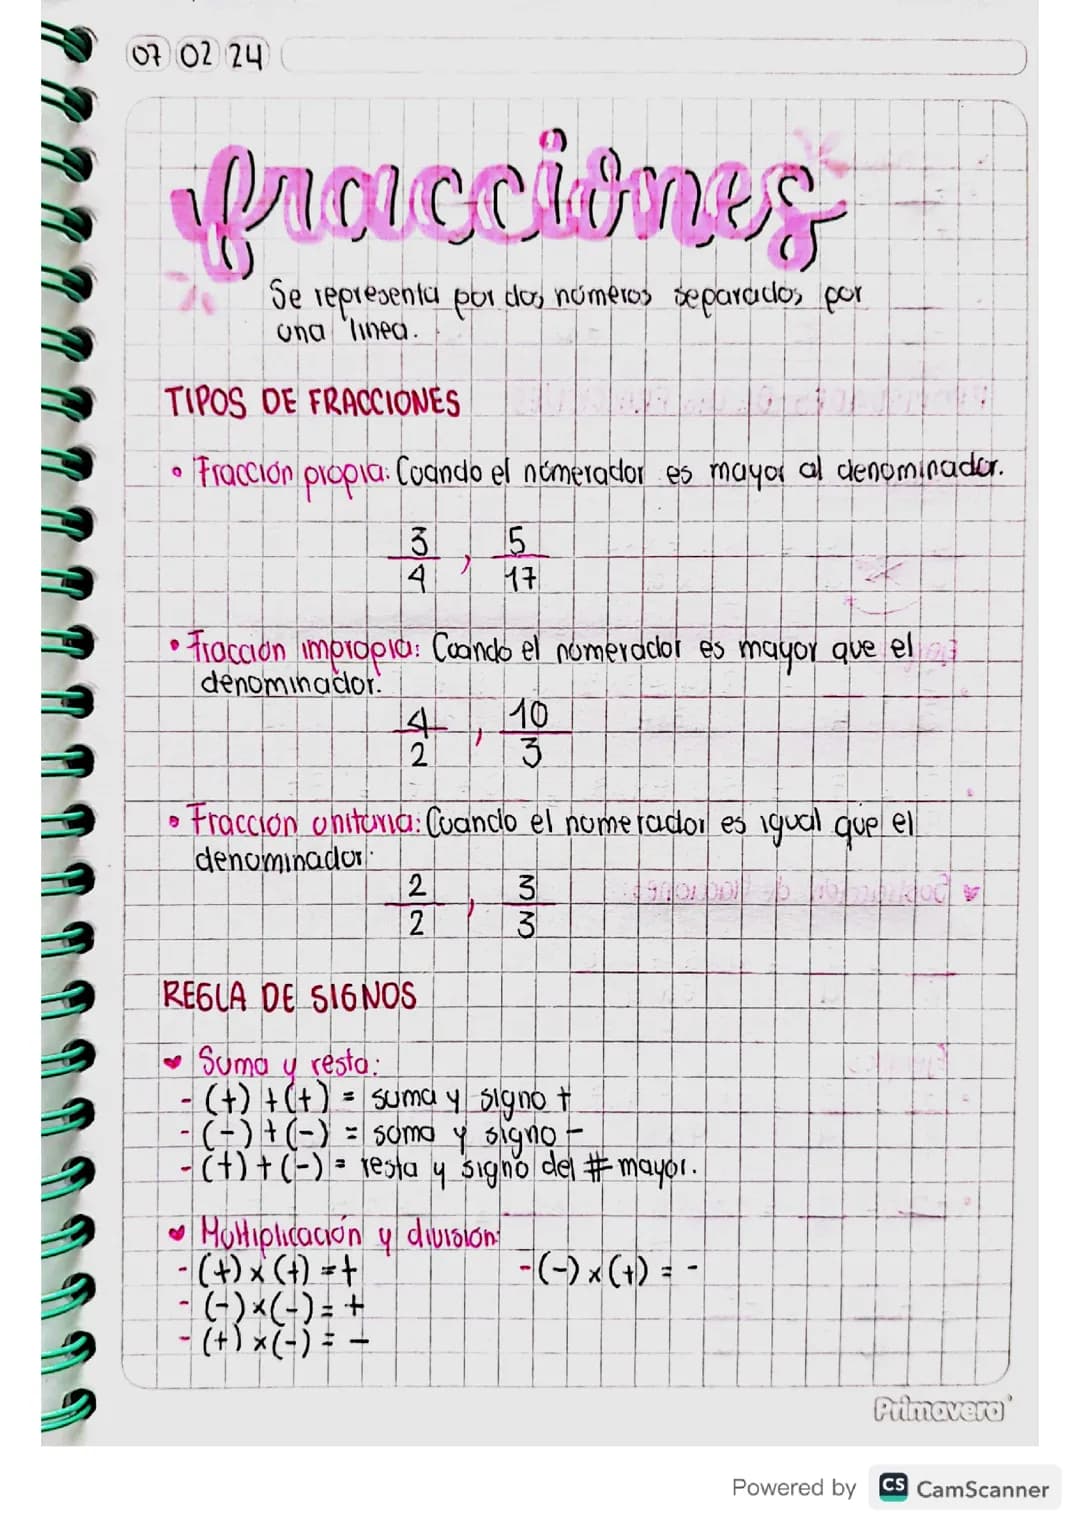 07 02 24
fracciones
Se representa por dos números separados por
una linea.
TIPOS DE FRACCIONES
• Fracción propia: Cuando el númerador es mayor al denominador.
3/4 , 5/17
• Fracción impropia: Cuando el numerador es mayor que el
denominador.
4/2 , 10/3
• Fracción unitaria: Cuando el numerador es igual que el
denominador.
2/2 , 3/3
REGLA DE SIGNOS
♥ Suma y resta:
- (+) + (+) = suma y signo +
- (-) + (-) = suma y signo -
- (+) + (-) = resta y signo del # mayor.
♥ Multiplicación y división:
- (+) x (+) = + - (-) x (+) = -
- (-) x (-) = +
- (+) x (-) = -
Primavera
Powered by CS CamScanner